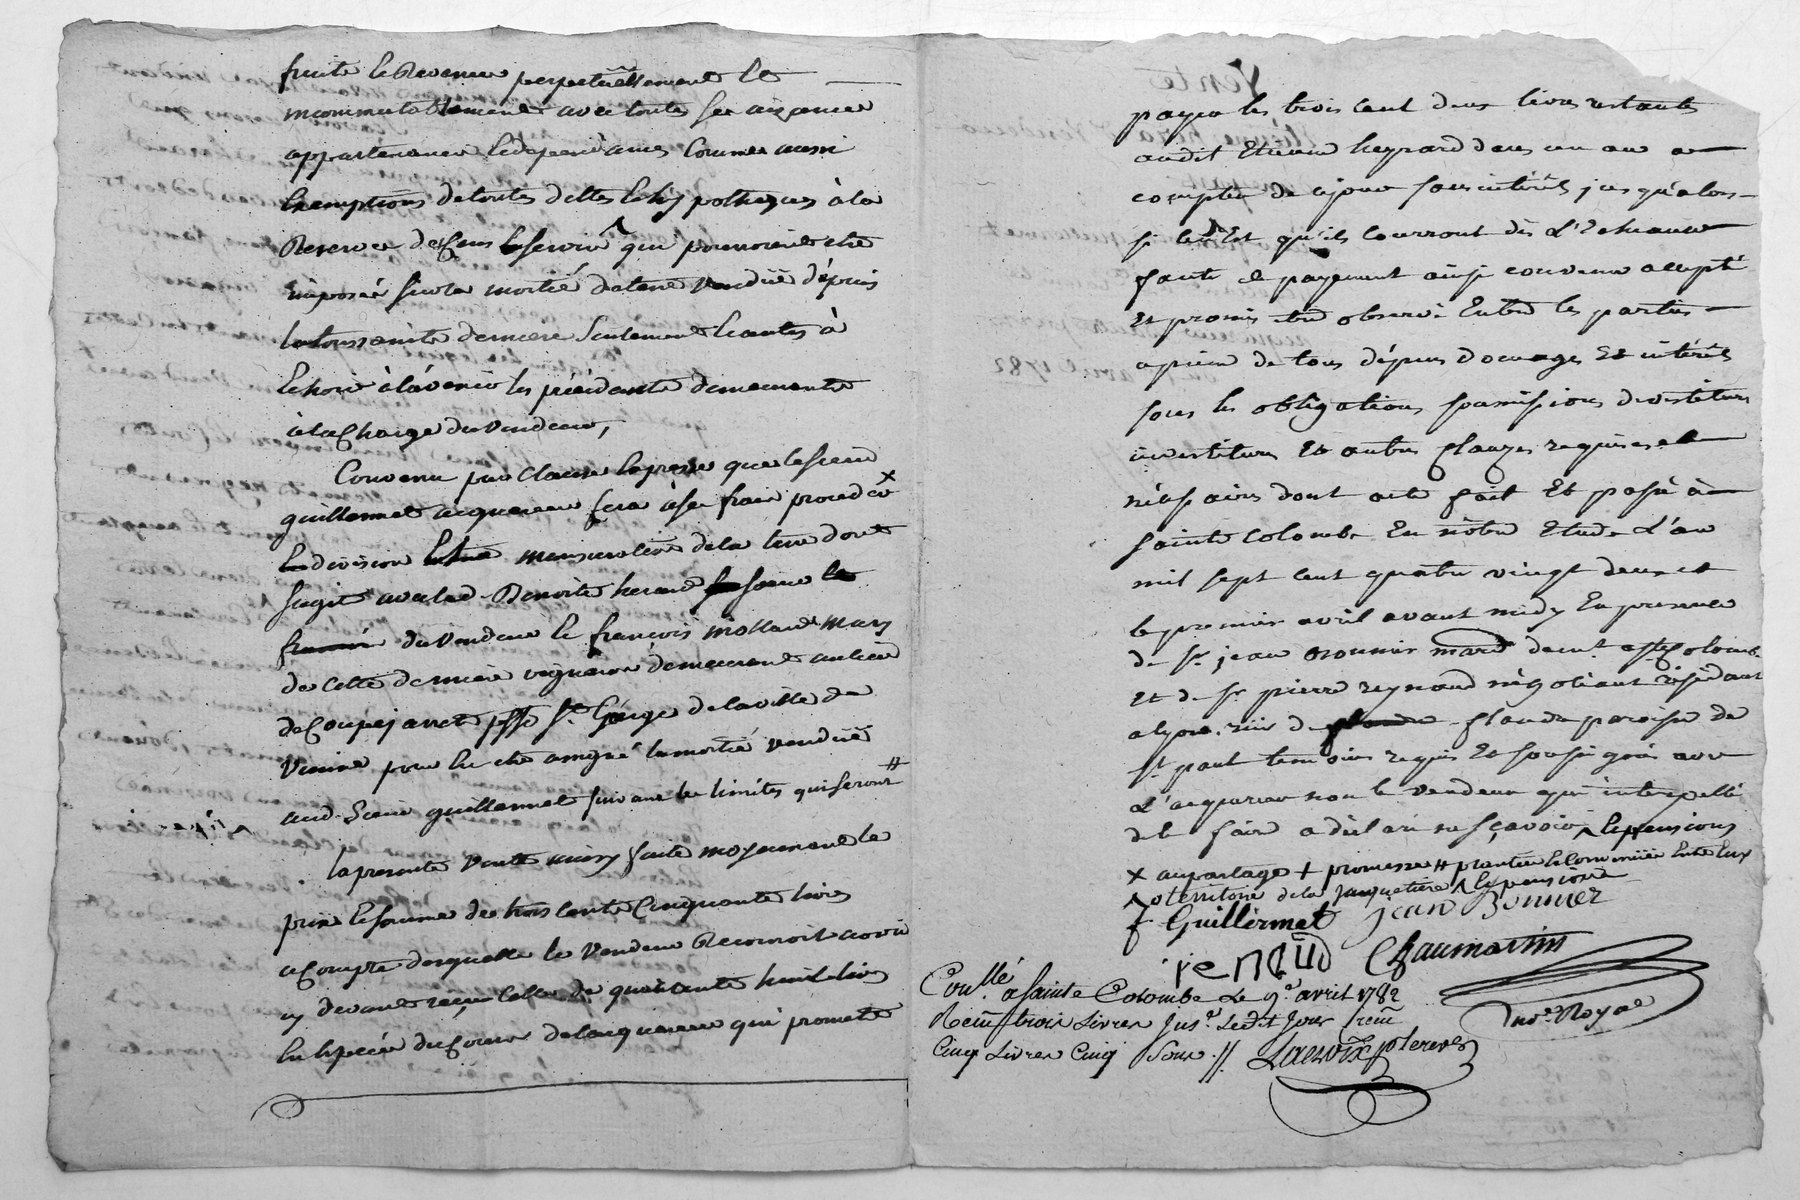 fruits & Revenus perpetuellement Et
incommutablement avec toutes ses aizances
appartenances & dependances Comme aussi
Exemptions de toutes dettes & hypotheques à la
Reserve de Cens & servis qui pourroient etre
imposés sur la moitié de terre vendüe depuis
la toussaints derniere seulement & autres à
Echoir à l'avenir les précédants demeurants
à la Charge du vendeur,
Convenu par clause Expresse que le sieur
guillermet acquereur fera à ses frais proceder x
division mensuration de la terre dont
s'agit avec lad. Benoite heyrard soeur
du vendeur & françois mollard mary
de cette derniere vigneron demeurant au lieu
de Coupejarret psse St George de la ville de
vienne pour lui etre assigné la moitié vendüe
aud. Sieur guillermet suivant les limites qui seront #
la presente vente ainsy faite moyennant le
prix & somme de trois cents Cinquante livres
a Compte desquelles le vendeur Reconnoit avoir
cy devant reçeu Celle de quarante huit livres
En Espèces du Cours de l'acquereur qui promet
Vente
payer les trois cent deux livres restants
audit Etienne heyrard dans un an a
compter de ce jour sans intérêts jusqu'alors
si ce n'est qu'ils Courront dès L'Echéance
faute de payement ainsi convenu accepté
Et promis etre observé Entre les parties
a peine de tous dépens domages Et intérêts
sous les obligations soumissions devestiture
investiture Et autres clauzes requises et
nécessaires dont acte fait Et passé à
sainte Colombe En nôtre Etude L'an
mil sept cent quatre vingt deux et
le premier avril avant midy En presence
de Sr. jean bonnier mard demt. a Ste Colombe
Et de Sr pierre reynaud négotiant résidant
a lyon rüe flandre paroisse de
St paul temoins requis Et soussignés avec
L'acquereur non le vendeur qui interpellé
de le faire a déclaré ne sçavoir & pensions
x au partage + promesse # plantées & Convenües Entr'Eux
territoire de la jacquetiere & pensions
f Guillermet jean Bonnier
renaud Chaumartin
Not.e Royal
Con.llé a Sainte Colombe Le 9.e avril 1782
Recü trois Livres Ins.é Ledit Jour recü
Cinq Livres Cinq Sous .//. Lacroix